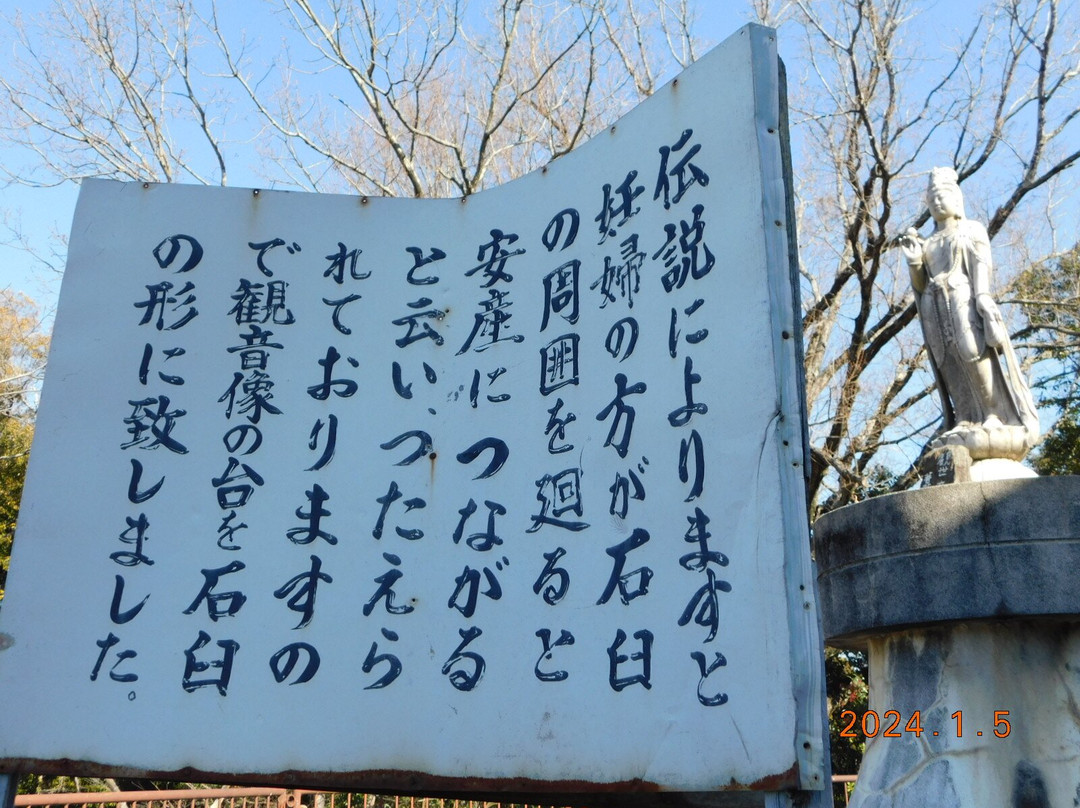 伝説によりますと
妊婦の方が石臼
の周囲を廻ると
安産につながる
と云い、つたえら
れておりますの
で観音像の台を石臼
の形に致しました。
2024.1.5